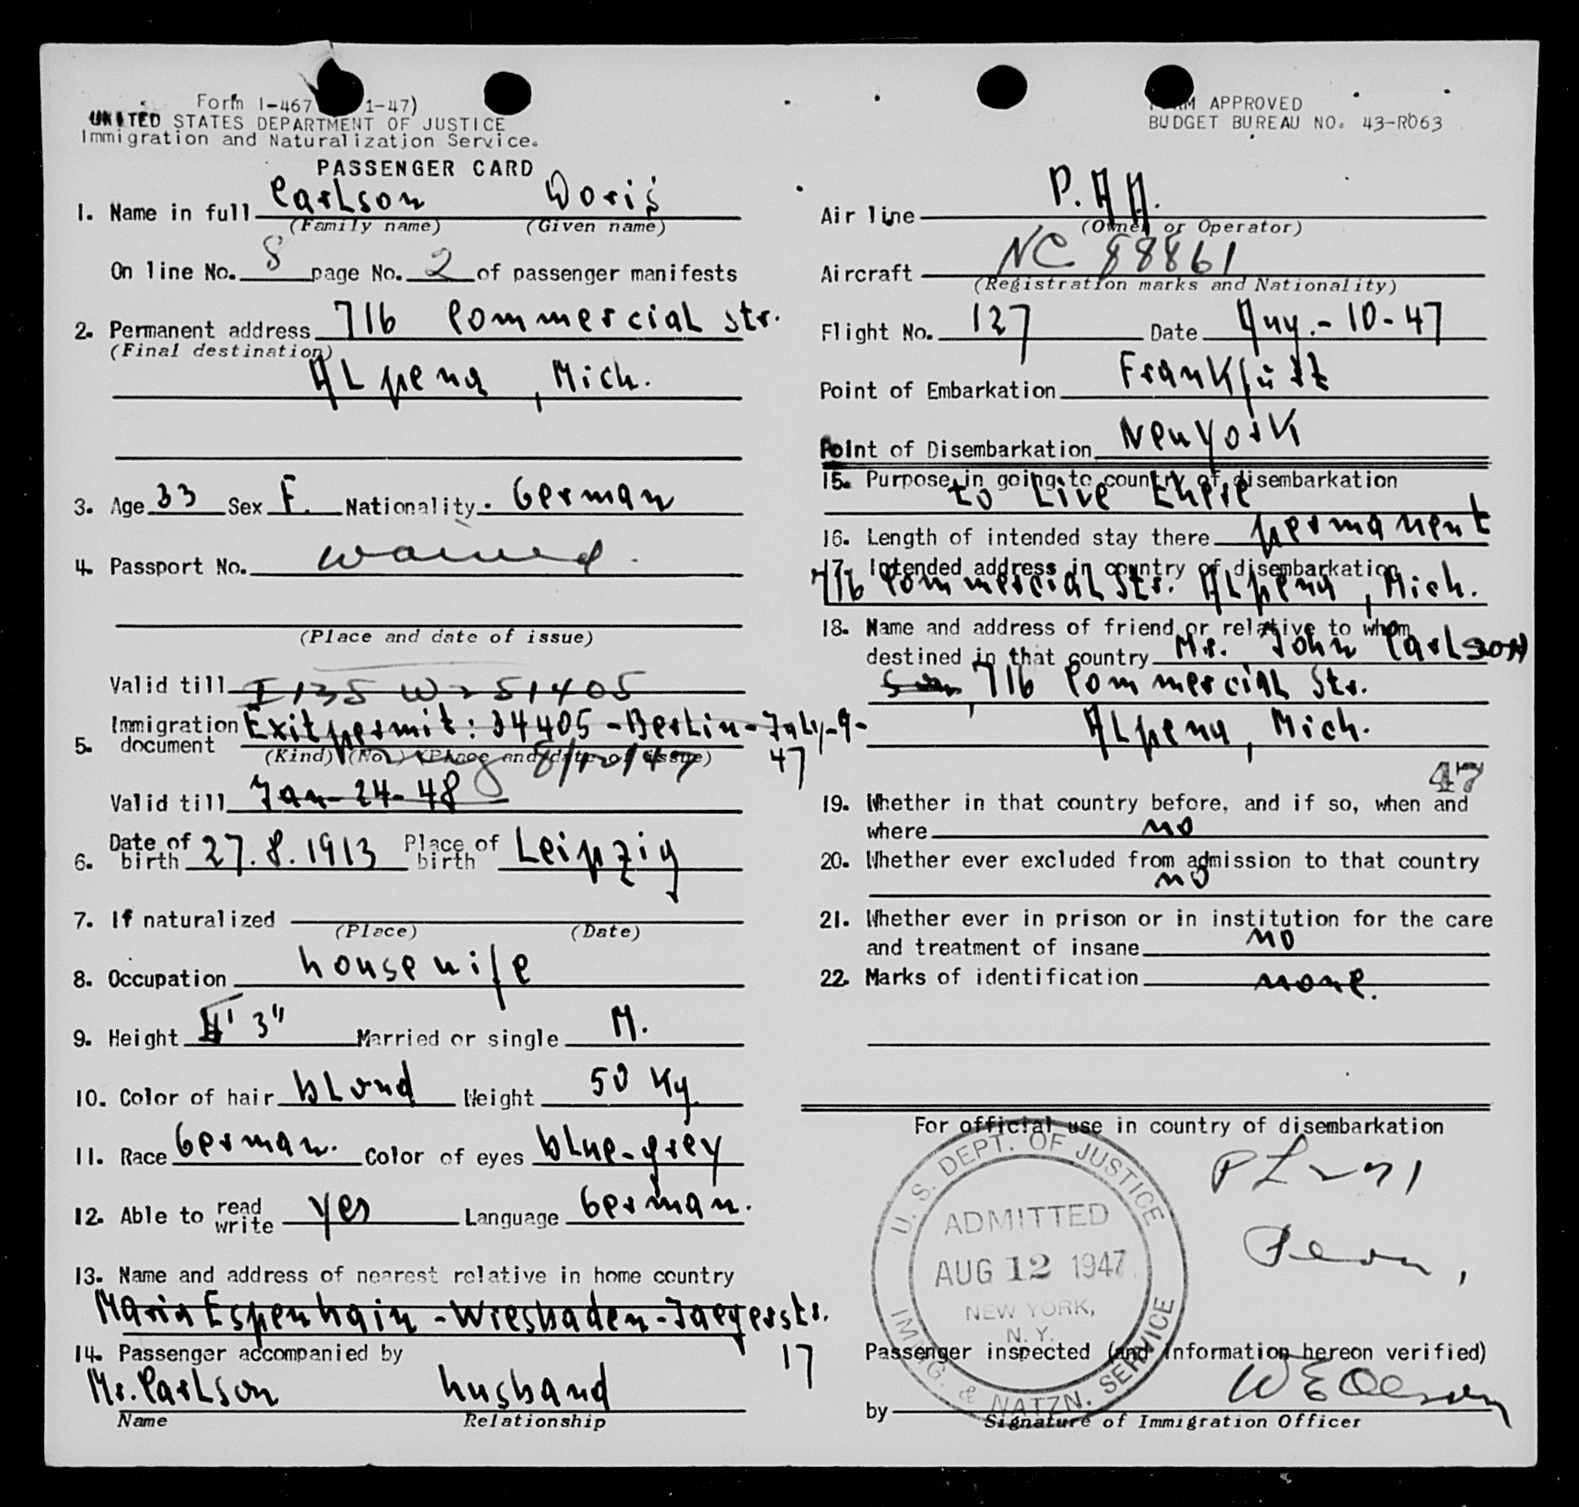 Form I-467 1-47)
UNITED STATES DEPARTMENT OF JUSTICE
Immigration and Naturalization Service.
PASSENGER CARD
1. Name in full Carlson Doris
(Family name) (Given name)
On line No. 8 page No. 2 of passenger manifests
2. Permanent address 716 Commercial Str.
(Final destination)
Alpena, Mich.
3. Age 33 Sex F. Nationality. German
4. Passport No. waived
(Place and date of issue)
Valid till I 135 51405
5. Immigration document Exitpermit: 34405-Berlin-July-9-
47
(Kind) (No.) (Place and date of issue)
8/12/47
Valid till Jan-24-48
6. Date of birth 27.8.1913 Place of birth Leipzig
7. If naturalized
(Place) (Date)
8. Occupation housewife
9. Height 3" Married or single M.
10. Color of hair blond Weight 50 Kg.
11. Race German. Color of eyes blue-grey
12. Able to read write yes Language German.
13. Name and address of nearest relative in home country
Maria Espenhain - Wiesbaden - Jaegerstr.
17
14. Passenger accompanied by
Mr. Carlson husband
Name Relationship
FORM APPROVED
BUDGET BUREAU NO. 43-R063
Air line P.A A.
(Owner or Operator)
Aircraft NC 88861
(Registration marks and Nationality)
Flight No. 127 Date Aug.-10-47
Point of Embarkation Frankfurt
Point of Disembarkation New York
15. Purpose in going to country of disembarkation
to live there
16. Length of intended stay there permanent
17. Intended address in country of disembarkation
716 Commercial Str. Alpena, Mich.
18. Name and address of friend or relative to whom
destined in that country Mr. John Carlson
716 Commercial Str.
Alpena, Mich.
47
19. Whether in that country before, and if so, when and
where no
20. Whether ever excluded from admission to that country
no
21. Whether ever in prison or in institution for the care
and treatment of insane no
22. Marks of identification none.
For official use in country of disembarkation
U. S. DEPT. OF JUSTICE
ADMITTED
AUG 12 1947
NEW YORK,
N. Y.
IMMIG. & NATZN. SERVICE
Passenger inspected (and information hereon verified)
by W E Olson
Signature of Immigration Officer